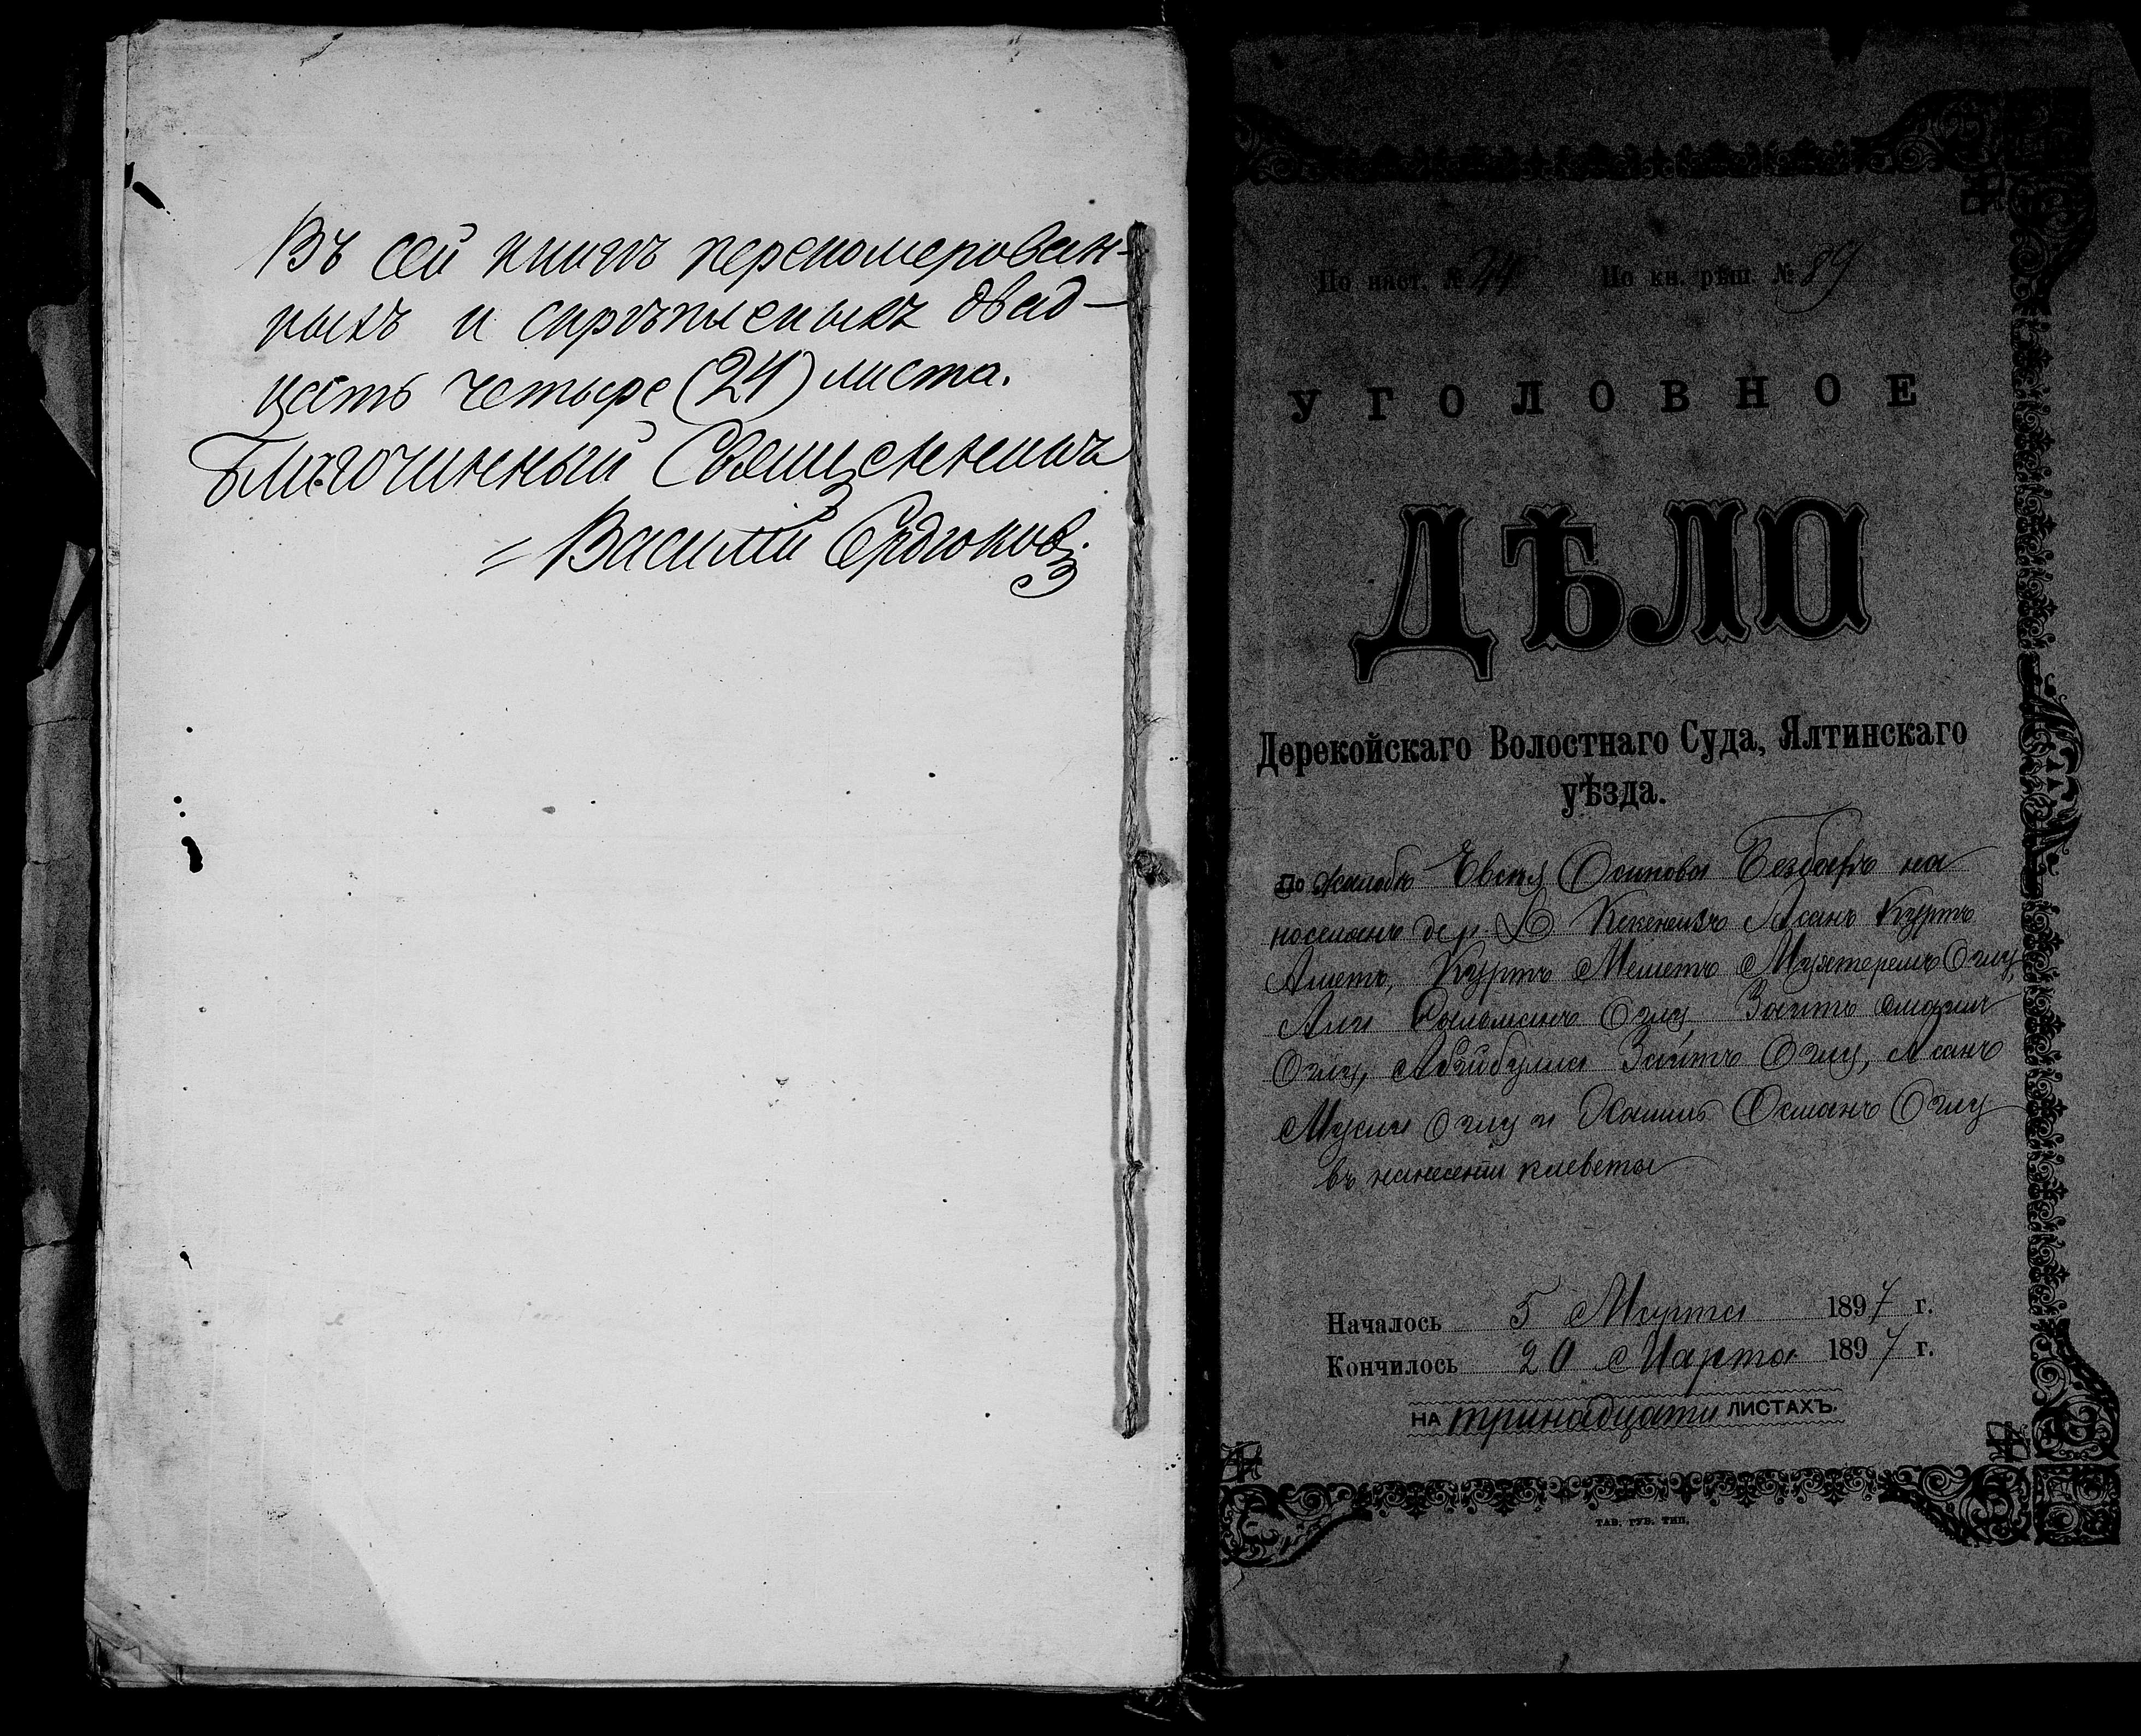 Въ сей книгѣ перенумерован-
ныхъ и скрѣпленыхъ двад-
цать четыре (24) листа.
Благочинный Священникъ
Василій
По наст. № 24 По кн. рѣш. № 89
УГОЛОВНОЕ
ДѢЛО
Дерекойскаго Волостнаго Суда, Ялтинскаго
уѣзда.
По жалобѣ Осипова на
поселянъ дер. Кекенеизъ Асанъ Куртъ
Аметъ, Куртъ Меметъ Мухтеремъ Оглу,
Али Сулейманъ Оглу, Заитъ
Оглу, Абибулла Заитъ Оглу, Асанъ
Муси Оглу и Халиль Османъ Оглу
въ нанесеніи клеветы
Началось 5 Марта 1897 г.
Кончилось 20 Марта 1897 г.
НА тринадцати ЛИСТАХЪ.
ТАВ. ГУБ. ТИП.